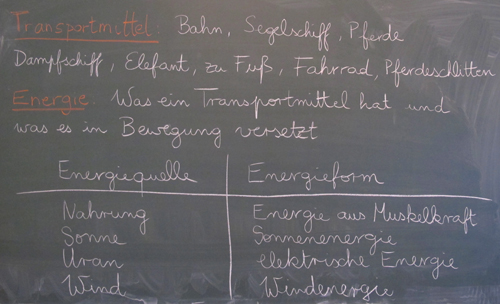 Transportmittel: Bahn, Segelschiff, Pferde
Dampfschiff, Elefant, zu Fuß, Fahrrad, Pferdeschlitten
Energie: Was ein Transportmittel hat und
was es in Bewegung versetzt
Energiequelle Energieform
Nahrung Energie aus Muskelkraft
Sonne Sonnenenergie
Uran elektrische Energie
Wind Windenergie